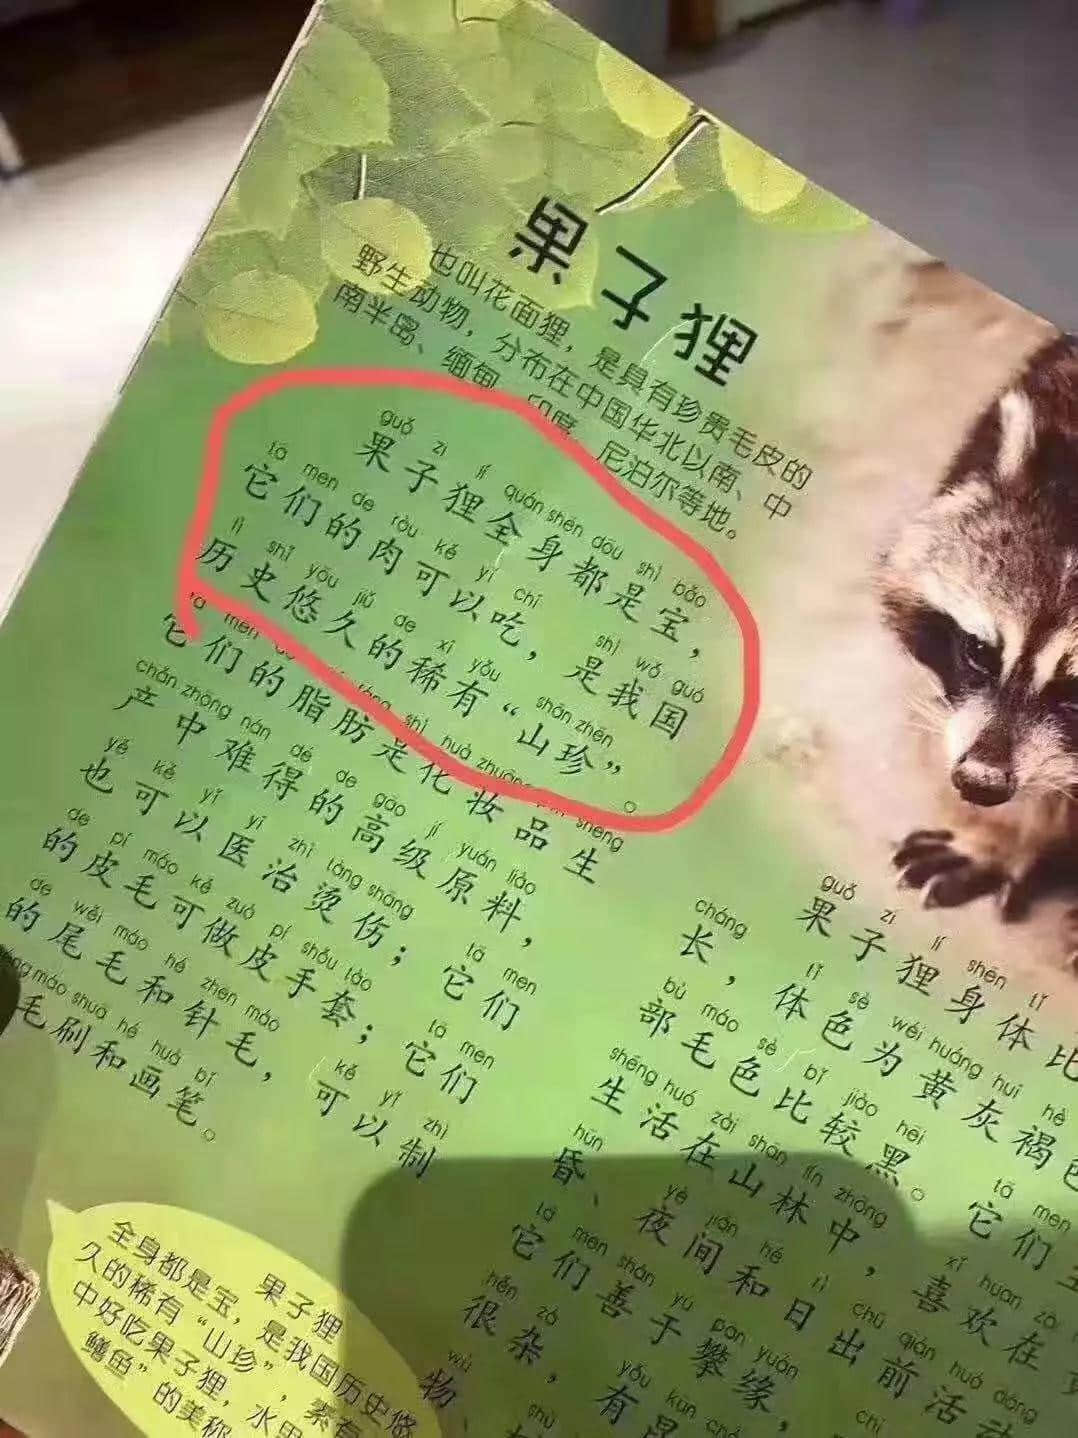 果子狸
也叫花面狸，是具有珍贵毛皮的
野生动物，分布在中国华北以南、中
南半岛、缅甸、印度、尼泊尔等地。
guǒ zi lí quán shēn dōu shì bǎo
果子狸全身都是宝，
tā men de ròu kě yǐ chī shì wǒ guó
它们的肉可以吃，是我国
lì shǐ yōu jiǔ de xī yǒu shān zhēn
历史悠久的稀有“山珍”。
tā men shì huà zhuāng shēng
它们的脂肪是化妆品生
chǎn zhōng nán dé de gāo jí yuán liào
产中难得的高级原料，
yě kě yǐ yī zhì tàng shāng tā men
也可以医治烫伤；它们
de pí máo kě zuò pí shǒu tào tā men
的皮毛可做皮手套；它们
de wěi máo hé zhēn máo kě yǐ zhì
的尾毛和针毛，可以制
máo shuā hé huà bǐ
毛刷和画笔。
guǒ zi lí shēn tǐ
果子狸身体比
cháng tǐ sè wéi huáng huī hè
长，体色为黄灰褐色
bù máo sè bǐ jiào hēi tā men
部毛色比较黑。它们
shēng huó zài shān lín zhōng xǐ huan zài
生活在山林中，喜欢在
hūn yè jiān hé rì chū qián huó dòng
昏、夜间和日出前活动
tā men shàn yú pān yuán
它们善于攀缘，
hěn zá yǒu kūn
很杂，有昆
wù
物、
果子狸
全身都是宝，是我国历史悠
久的稀有“山珍”，素有
中好吃果子狸，水里
鳝鱼”的美称